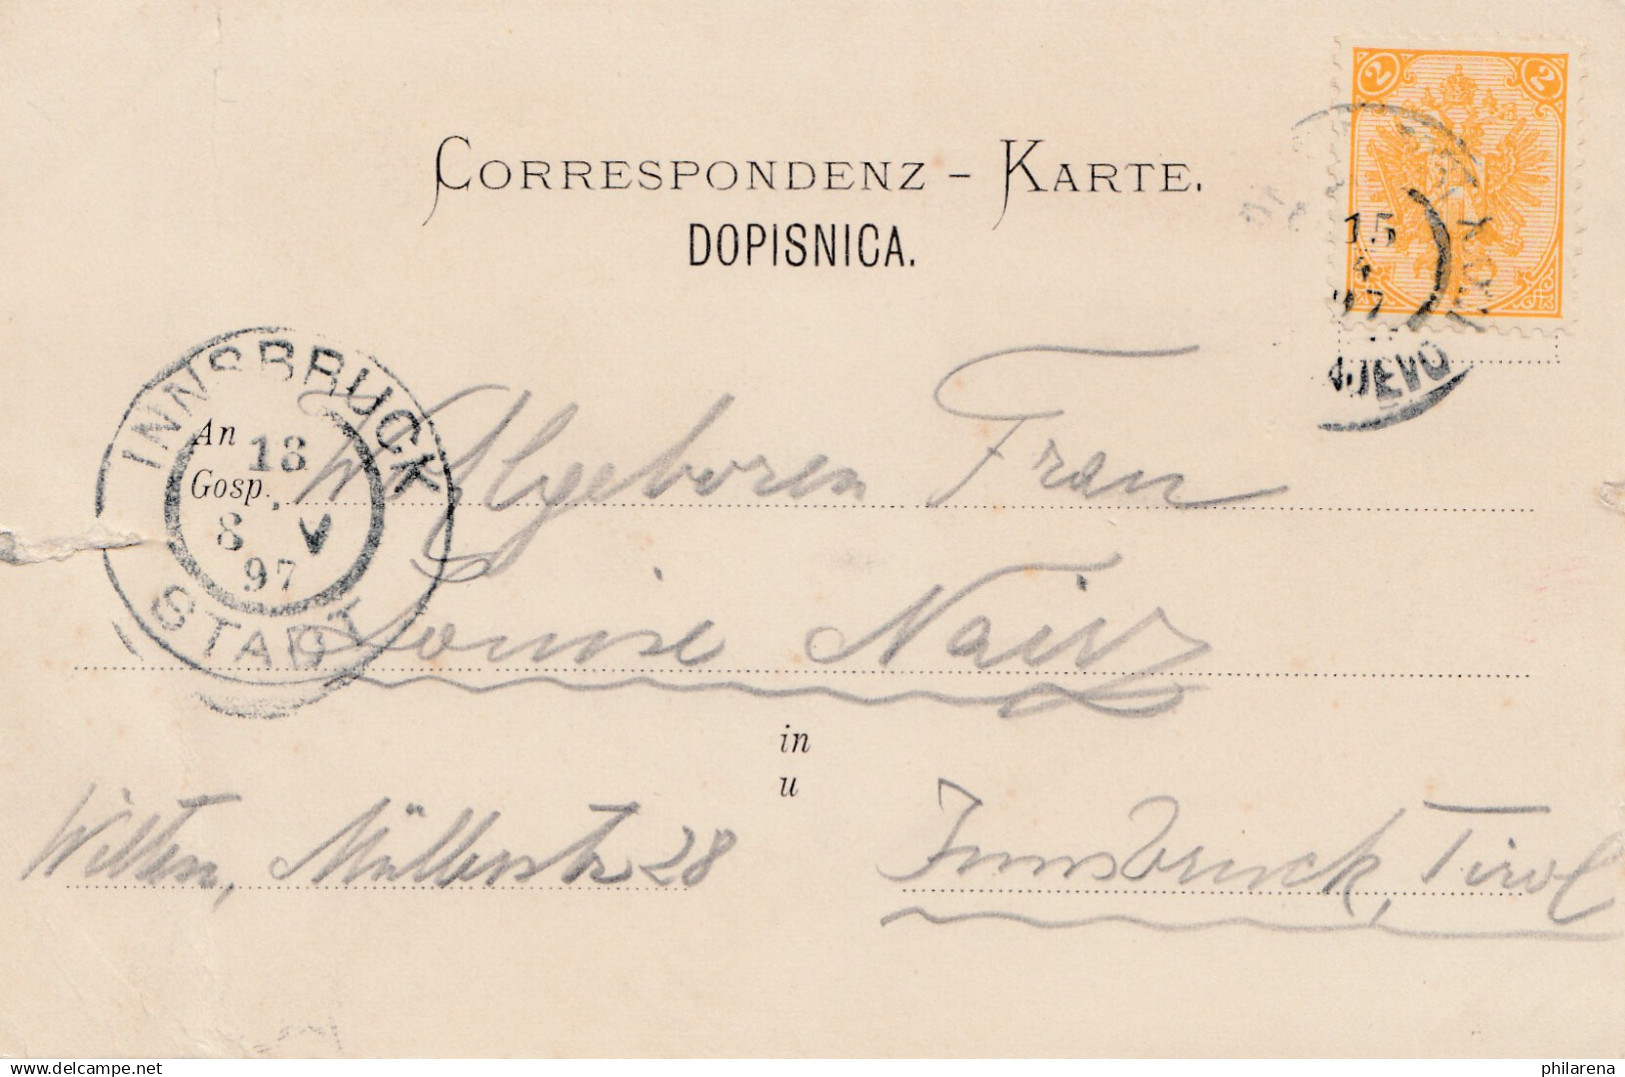 2 2
CORRESPONDENZ - KARTE.
DOPISNICA.
15
97
JEVO
INNSBRUCK
An 18
Gosp.
8 V
97
STADT
Wohlgeboren Frau
Louise Nairz
in
u
Wilten, Müllerstr 28
Innsbruck, Tirol
philarena